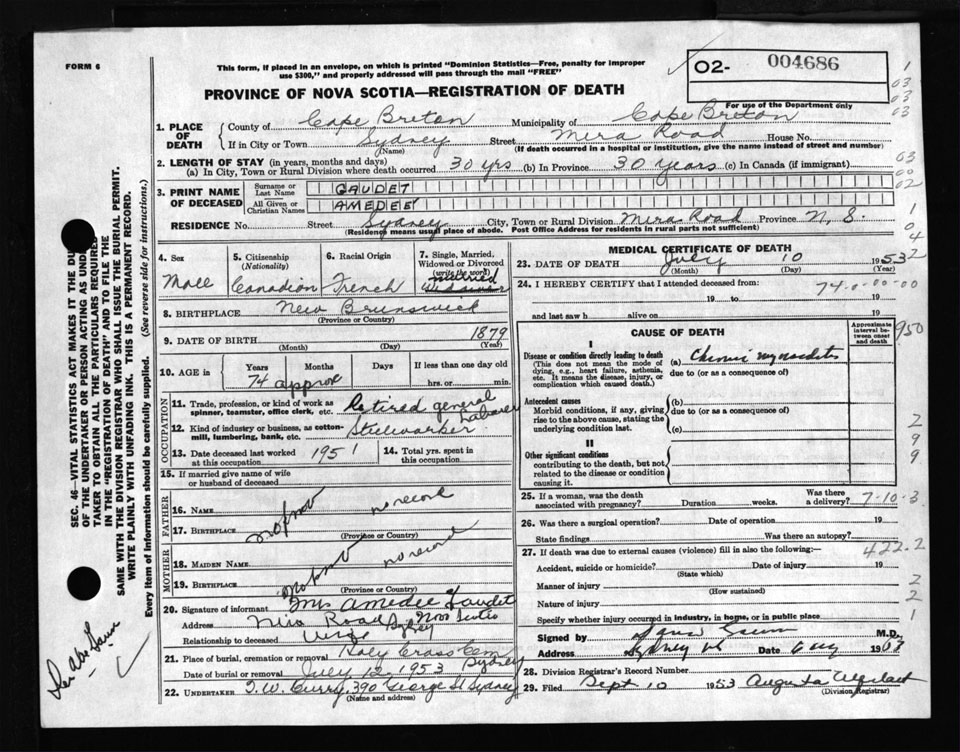 FORM 6
This form, if placed in an envelope, on which is printed "Dominion Statistics—Free, penalty for improper
use $300," and properly addressed will pass through the mail "FREE"
02- 004686
PROVINCE OF NOVA SCOTIA—REGISTRATION OF DEATH
For use of the Department only
1. PLACE OF DEATH { County of Cape Breton Municipality of Cape Breton
If in City or Town Sydney Street Mira Road House No.
(Name) (If death occurred in a hospital or institution, give the name instead of street and number)
2. LENGTH OF STAY (in years, months and days)
(a) In City, Town or Rural Division where death occurred 30 yrs (b) In Province 30 years (c) In Canada (if immigrant)
3. PRINT NAME OF DECEASED { Surname or Last Name GAUDET
All Given or Christian Names AMEDEE
RESIDENCE No. Street Sydney City, Town or Rural Division Mira Road Province N. S.
(Residence means usual place of abode. Post Office Address for residents in rural parts not sufficient)
4. Sex Male
5. Citizenship (Nationality) Canadian
6. Racial Origin French
7. Single, Married, Widowed or Divorced (write the word) married
8. BIRTHPLACE New Brunswick
(Province or Country)
9. DATE OF BIRTH 1879
(Month) (Day) (Year)
10. AGE in Years Months Days If less than one day
74 approx hrs. or min.
OCCUPATION
11. Trade, profession, or kind of work as spinner, teamster, office clerk, etc. Retired general labourer
12. Kind of industry or business, as cotton-mill, lumbering, bank, etc. Steelworker
13. Date deceased last worked at this occupation 1951
14. Total yrs. spent in this occupation
15. If married give name of wife or husband of deceased
FATHER
16. Name no record
17. Birthplace
(Province or Country)
MOTHER
18. Maiden Name no record
19. Birthplace
(Province or Country)
20. Signature of informant Mrs Amedee Gaudet
Address Mira Road Sydney Nova Scotia
Relationship to deceased Wife
21. Place of burial, cremation or removal Holy Cross Cem Sydney
Date of burial or removal July 12, 1953
22. UNDERTAKER T. W. Curry, 390 George St Sydney
(Name and address)
MEDICAL CERTIFICATE OF DEATH
23. DATE OF DEATH July 10 1953
(Month) (Day) (Year)
24. I HEREBY CERTIFY that I attended deceased from:
19 to 19
and last saw h alive on 19
74-0-00-00
CAUSE OF DEATH
Approximate interval between onset and death
I
Disease or condition directly leading to death
(This does not mean the mode of dying, e.g., heart failure, asthenia, etc. It means the disease, injury, or complication which caused death.)
(a) Chronic myocarditis
due to (or as a consequence of)
Antecedent causes
Morbid conditions, if any, giving rise to the above cause, stating the underlying condition last.
(b)
due to (or as a consequence of)
(c)
II
Other significant conditions
contributing to the death, but not related to the disease or condition causing it.
25. If a woman, was the death associated with pregnancy? Duration weeks. Was there a delivery? 7-10-3
26. Was there a surgical operation? Date of operation 19
State findings Was there an autopsy?
27. If death was due to external causes (violence) fill in also the following:— 422.2
Accident, suicide or homicide? Date of injury 19
(State which)
Manner of injury
(How sustained)
Nature of injury
Specify whether injury occurred in industry, in home, or in public place
Signed by M.D.
Address Sydney NS Date Aug 19
28. Division Registrar's Record Number
29. Filed Sept 10 1953 Augusta
(Division Registrar)
SEC. 46—VITAL STATISTICS ACT MAKES IT THE DUTY
OF THE UNDERTAKER OR PERSON ACTING AS UNDER-
TAKER TO OBTAIN ALL THE PARTICULARS REQUIRED
IN THE "REGISTRATION OF DEATH" AND TO FILE THE
SAME WITH THE DIVISION REGISTRAR WHO SHALL ISSUE THE BURIAL PERMIT.
WRITE PLAINLY WITH UNFADING INK. THIS IS A PERMANENT RECORD.
Every item of information should be carefully supplied. (See reverse side for instructions.)